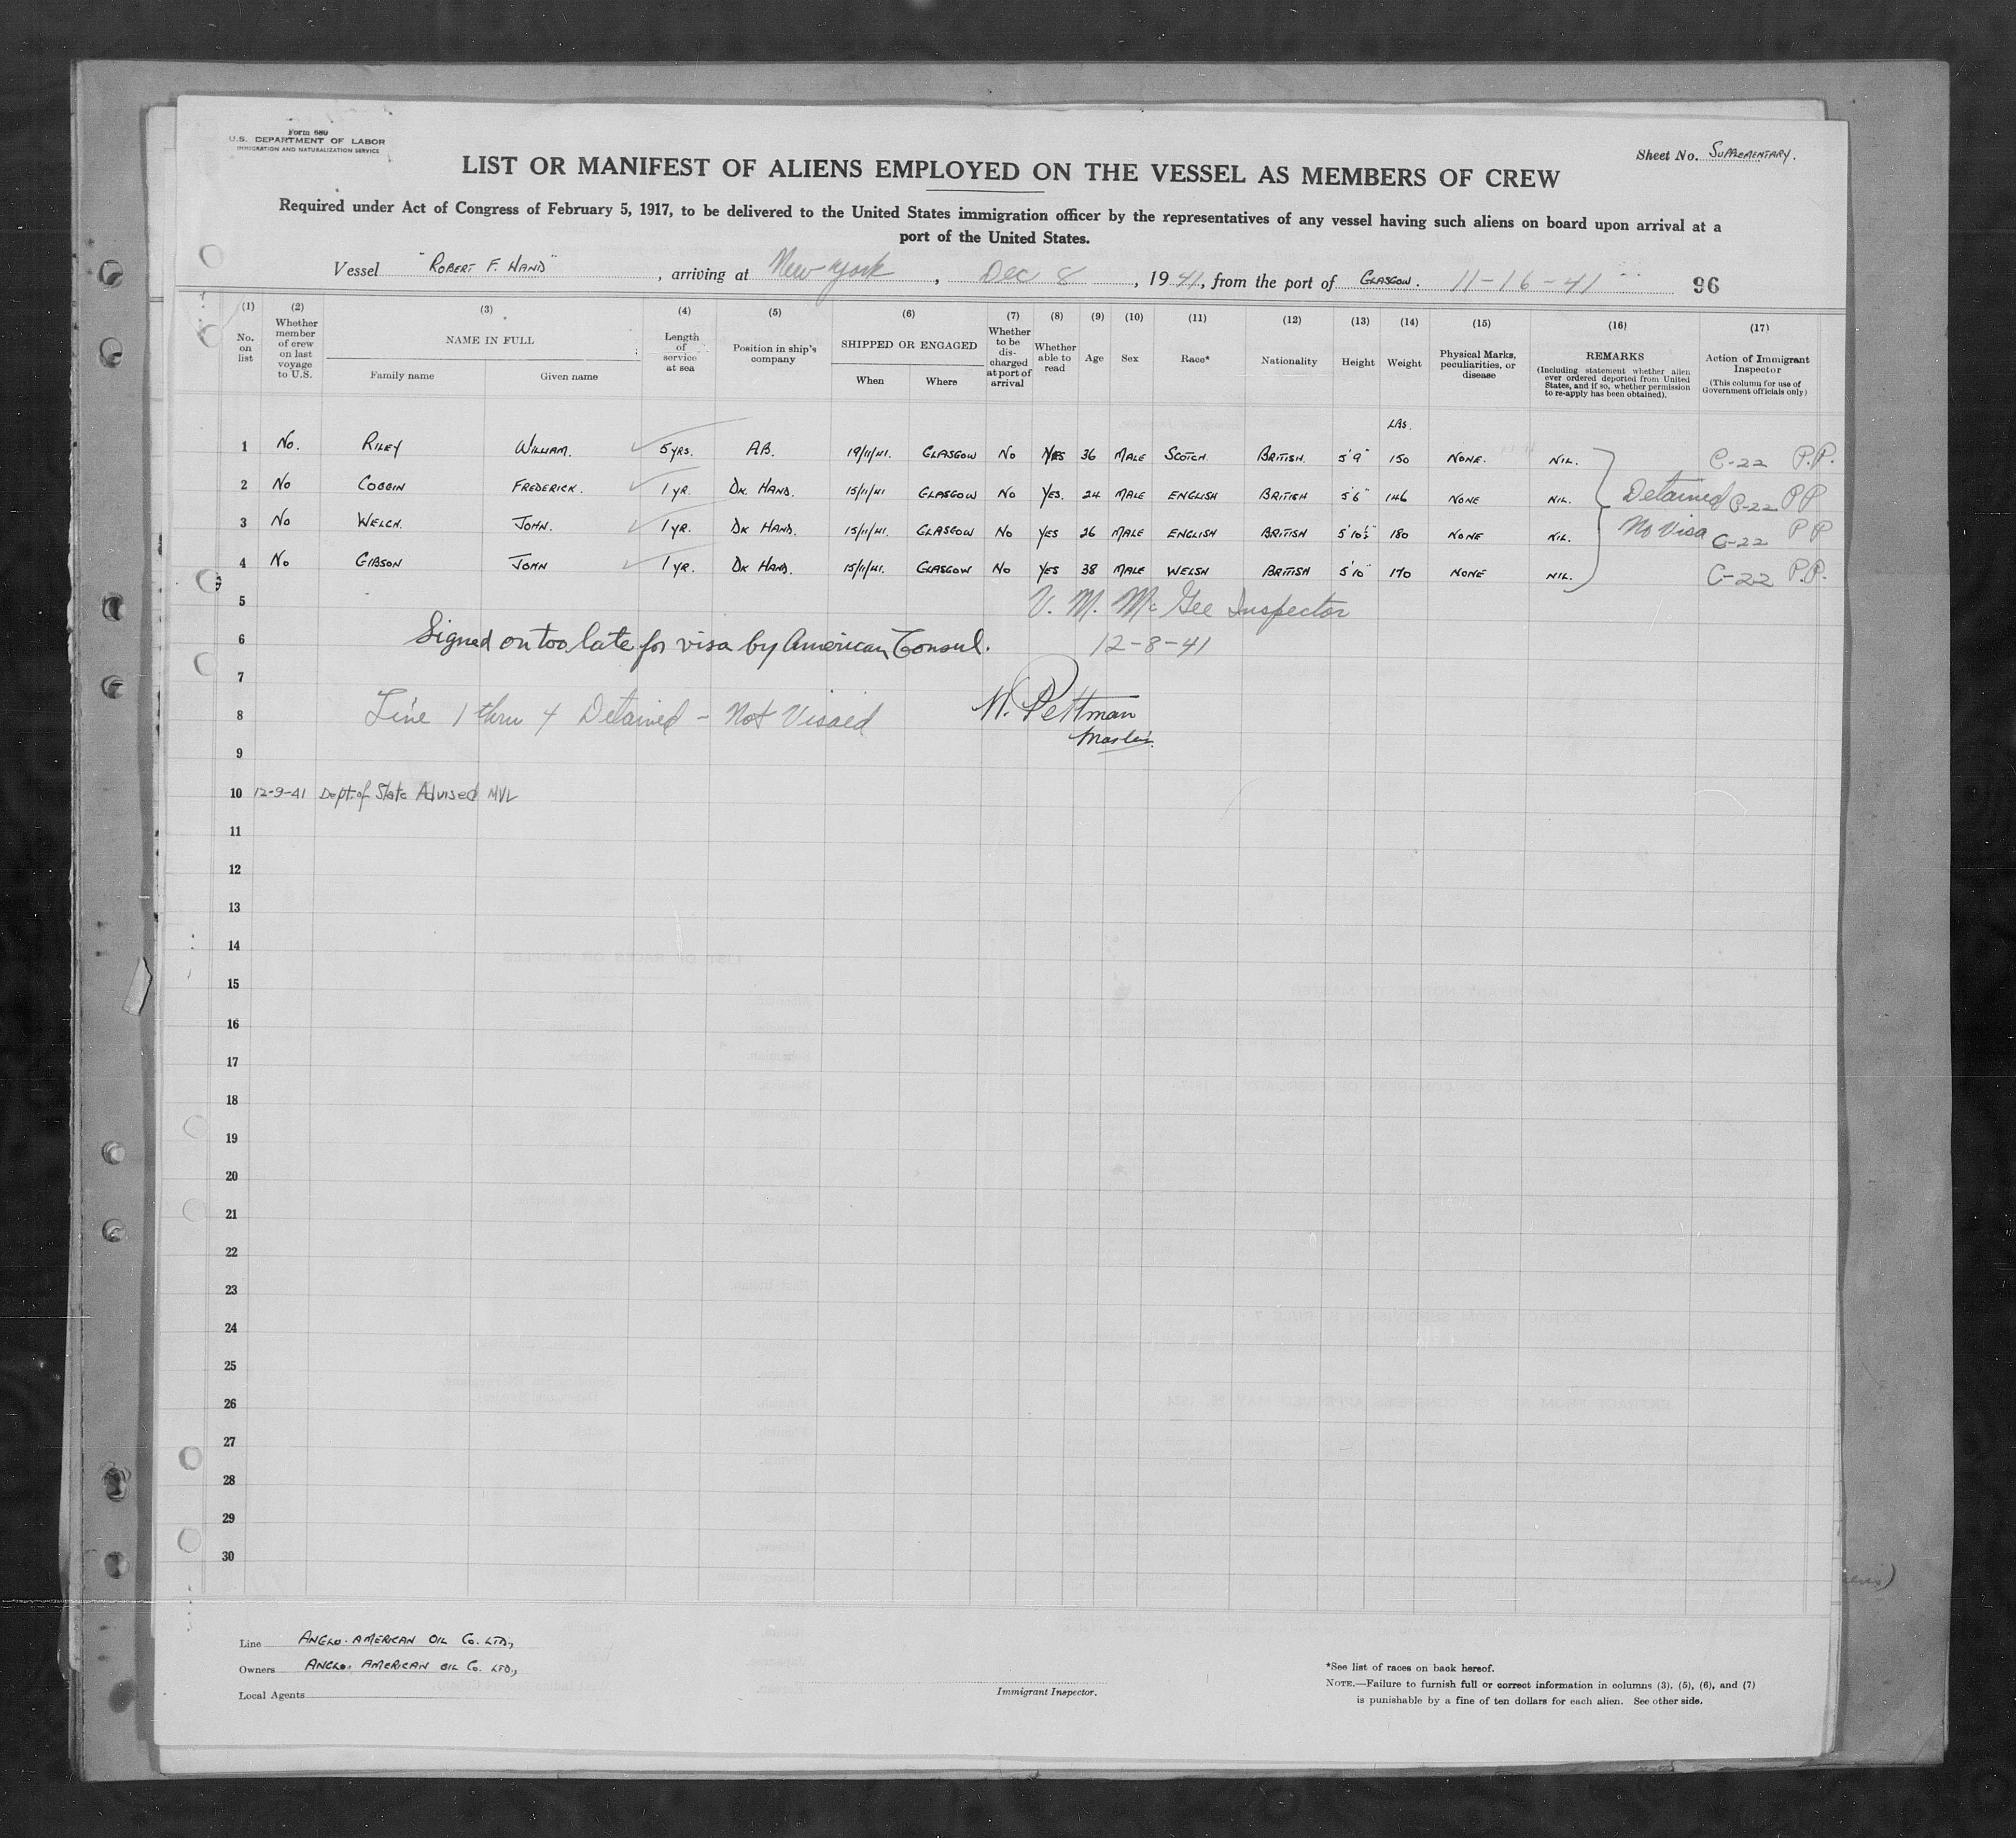 Form 680
U.S. DEPARTMENT OF LABOR
IMMIGRATION AND NATURALIZATION SERVICE
Sheet No. SUPPLEMENTARY.
LIST OR MANIFEST OF ALIENS EMPLOYED ON THE VESSEL AS MEMBERS OF CREW
Required under Act of Congress of February 5, 1917, to be delivered to the United States immigration officer by the representatives of any vessel having such aliens on board upon arrival at a
port of the United States.
Vessel "ROBERT F. HAND", arriving at New York, Dec 8, 1941, from the port of GLASGOW. 11-16-41 96
(1) No. on list
(2) Whether member of crew on last voyage to U.S.
(3) NAME IN FULL Family name Given name
(4) Length of service at sea
(5) Position in ship's company
(6) SHIPPED OR ENGAGED When Where
(7) Whether to be discharged at port of arrival
(8) Whether able to read
(9) Age
(10) Sex
(11) Race*
(12) Nationality
(13) Height
(14) Weight
(15) Physical Marks, peculiarities, or disease
(16) REMARKS (Including statement whether alien ever ordered deported from United States, and if so, whether permission to re-apply has been obtained).
(17) Action of Immigrant Inspector (This column for use of Government officials only)
LBS.
1 No. RILEY WILLIAM. 5 YRS. A.B. 19/11/41. GLASGOW No YES 36 MALE SCOTCH. BRITISH. 5'9" 150 NONE. NIL. C-22 P.P.
2 No COBBIN FREDERICK. 1 YR. DK. HAND. 15/11/41 GLASGOW No YES. 24 MALE ENGLISH BRITISH 5'6" 146 NONE NIL. Detained C-22 PP
3 No WELCH. JOHN. 1 YR. DK HAND. 15/11/41. GLASGOW No YES 26 MALE ENGLISH BRITISH 5'10½" 180 NONE NIL. No Visa C-22 PP
4 No GIBSON JOHN 1 YR. DK HAND. 15/11/41. GLASGOW No YES 38 MALE WELSH BRITISH 5'10" 170 NONE NIL. C-22 P.P.
5 V. M. McGee Inspector
6 Signed on too late for visa by American Consul. 12-8-41
7
8 Line 1 thru 4 Detained - Not Visaed W. Pettman
Master.
9
10 12-9-41 Dept. of State Advised MVL
11
12
13
14
15
16
17
18
19
20
21
22
23
24
25
26
27
28
29
30
Line ANGLO. AMERICAN OIL Co. LTD.,
Owners ANGLO. AMERICAN OIL Co. LTD.,
Local Agents
Immigrant Inspector.
*See list of races on back hereof.
NOTE.—Failure to furnish full or correct information in columns (3), (5), (6), and (7)
is punishable by a fine of ten dollars for each alien. See other side.